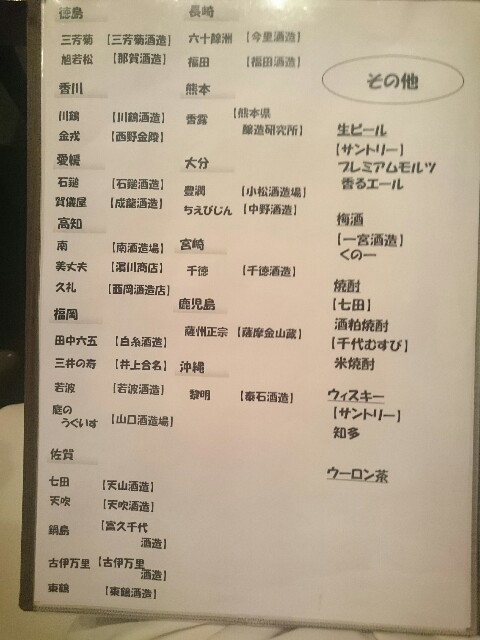 徳島
三芳菊 【三芳菊酒造】
旭若松 【那賀酒造】
香川
川鶴 【川鶴酒造】
金戎 【西野金陵】
愛媛
石鎚 【石鎚酒造】
賀儀屋 【成龍酒造】
高知
南 【南酒造場】
美丈夫 【濱川商店】
久礼 【西岡酒造店】
福岡
田中六五 【白糸酒造】
三井の寿 【井上合名】
若波 【若波酒造】
庭の
うぐいす 【山口酒造場】
佐賀
七田 【天山酒造】
天吹 【天吹酒造】
鍋島 【富久千代
酒造】
古伊万里 【古伊万里
酒造】
東鶴 【東鶴酒造】
長崎
六十餘洲 【今里酒造】
福田 【福田酒造】
熊本
香露 【熊本県
醸造研究所】
大分
豊潤 【小松酒造場】
ちえびじん 【中野酒造】
宮崎
千徳 【千徳酒造】
鹿児島
薩州正宗 【薩摩金山蔵】
沖縄
黎明 【泰石酒造】
その他
生ビール
【サントリー】
プレミアムモルツ
香るエール
梅酒
【一宮酒造】
くの一
焼酎
【七田】
酒粕焼酎
【千代むすび】
米焼酎
ウィスキー
【サントリー】
知多
ウーロン茶